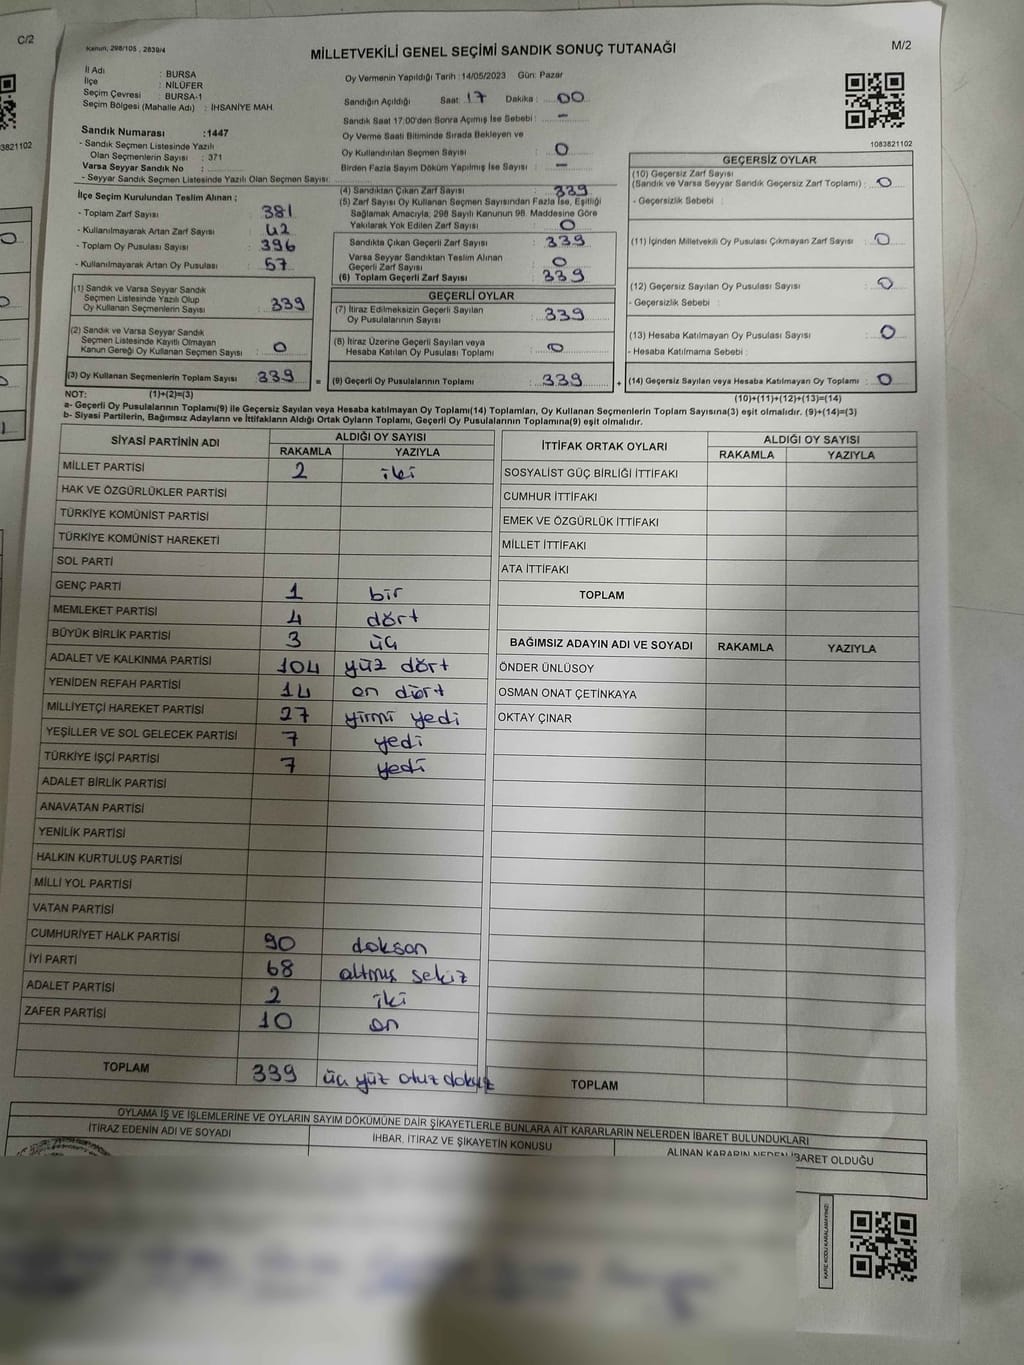 C/2
3821102
Kanun, 298/105 , 2839/4
MİLLETVEKİLİ GENEL SEÇİMİ SANDIK SONUÇ TUTANAĞI
M/2
İl Adı : BURSA
İlçe : NİLÜFER
Seçim Çevresi : BURSA-1
Seçim Bölgesi (Mahalle Adı) : İHSANİYE MAH.
Sandık Numarası :1447
- Sandık Seçmen Listesinde Yazılı
Olan Seçmenlerin Sayısı : 371
Varsa Seyyar Sandık No :
- Seyyar Sandık Seçmen Listesinde Yazılı Olan Seçmen Sayısı:
Oy Vermenin Yapıldığı Tarih :14/05/2023 Gün: Pazar
Sandığın Açıldığı Saat: 17 Dakika : 00
Sandık Saat 17:00'den Sonra Açılmış İse Sebebi : -
Oy Verme Saati Bitiminde Sırada Bekleyen ve
Oy Kullandırılan Seçmen Sayısı : 0
Birden Fazla Sayım Döküm Yapılmış İse Sayısı : -
1083821102
İlçe Seçim Kurulundan Teslim Alınan ;
- Toplam Zarf Sayısı : 381
- Kullanılmayarak Artan Zarf Sayısı : 42
- Toplam Oy Pusulası Sayısı : 396
- Kullanılmayarak Artan Oy Pusulası : 57
(1) Sandık ve Varsa Seyyar Sandık
Seçmen Listesinde Yazılı Olup
Oy Kullanan Seçmenlerin Sayısı : 339
(2) Sandık ve Varsa Seyyar Sandık
Seçmen Listesinde Kayıtlı Olmayan
Kanun Gereği Oy Kullanan Seçmen Sayısı : 0
(3) Oy Kullanan Seçmenlerin Toplam Sayısı : 339
(4) Sandıktan Çıkan Zarf Sayısı : 339
(5) Zarf Sayısı Oy Kullanan Seçmen Sayısından Fazla İse, Eşitliği
Sağlamak Amacıyla; 298 Sayılı Kanunun 98. Maddesine Göre
Yakılarak Yok Edilen Zarf Sayısı : 0
Sandıkta Çıkan Geçerli Zarf Sayısı : 339
Varsa Seyyar Sandıktan Teslim Alınan
Geçerli Zarf Sayısı : 0
(6) Toplam Geçerli Zarf Sayısı : 339
GEÇERLİ OYLAR
(7) İtiraz Edilmeksizin Geçerli Sayılan
Oy Pusulalarının Sayısı : 339
(8) İtiraz Üzerine Geçerli Sayılan veya
Hesaba Katılan Oy Pusulası Toplamı : 0
= (9) Geçerli Oy Pusulalarının Toplamı : 339 +
GEÇERSİZ OYLAR
(10) Geçersiz Zarf Sayısı
(Sandık ve Varsa Seyyar Sandık Geçersiz Zarf Toplamı) : 0
- Geçersizlik Sebebi :
(11) İçinden Milletvekili Oy Pusulası Çıkmayan Zarf Sayısı : 0
(12) Geçersiz Sayılan Oy Pusulası Sayısı : 0
- Geçersizlik Sebebi :
(13) Hesaba Katılmayan Oy Pusulası Sayısı : 0
- Hesaba Katılmama Sebebi :
(14) Geçersiz Sayılan veya Hesaba Katılmayan Oy Toplamı : 0
NOT: (1)+(2)=(3)
(10)+(11)+(12)+(13)=(14)
a- Geçerli Oy Pusulalarının Toplamı(9) ile Geçersiz Sayılan veya Hesaba katılmayan Oy Toplamı(14) Toplamları, Oy Kullanan Seçmenlerin Toplam Sayısına(3) eşit olmalıdır. (9)+(14)=(3)
b- Siyasi Partilerin, Bağımsız Adayların ve İttifakların Aldığı Ortak Oyların Toplamı, Geçerli Oy Pusulalarının Toplamına(9) eşit olmalıdır.
SİYASİ PARTİNİN ADI ALDIĞI OY SAYISI
RAKAMLA YAZIYLA
MİLLET PARTİSİ 2 iki
HAK VE ÖZGÜRLÜKLER PARTİSİ
TÜRKİYE KOMÜNİST PARTİSİ
TÜRKİYE KOMÜNİST HAREKETİ
SOL PARTİ
GENÇ PARTİ 1 bir
MEMLEKET PARTİSİ 4 dört
BÜYÜK BİRLİK PARTİSİ 3 üç
ADALET VE KALKINMA PARTİSİ 104 yüz dört
YENİDEN REFAH PARTİSİ 14 on dört
MİLLİYETÇİ HAREKET PARTİSİ 27 yirmi yedi
YEŞİLLER VE SOL GELECEK PARTİSİ 7 yedi
TÜRKİYE İŞÇİ PARTİSİ 7 yedi
ADALET BİRLİK PARTİSİ
ANAVATAN PARTİSİ
YENİLİK PARTİSİ
HALKIN KURTULUŞ PARTİSİ
MİLLİ YOL PARTİSİ
VATAN PARTİSİ
CUMHURİYET HALK PARTİSİ 90 doksan
İYİ PARTİ 68 altmış sekiz
ADALET PARTİSİ 2 iki
ZAFER PARTİSİ 10 on
TOPLAM 339 üç yüz otuz dokuz
İTTİFAK ORTAK OYLARI ALDIĞI OY SAYISI
RAKAMLA YAZIYLA
SOSYALİST GÜÇ BİRLİĞİ İTTİFAKI
CUMHUR İTTİFAKI
EMEK VE ÖZGÜRLÜK İTTİFAKI
MİLLET İTTİFAKI
ATA İTTİFAKI
TOPLAM
BAĞIMSIZ ADAYIN ADI VE SOYADI RAKAMLA YAZIYLA
ÖNDER ÜNLÜSOY
OSMAN ONAT ÇETİNKAYA
OKTAY ÇINAR
TOPLAM
OYLAMA İŞ VE İŞLEMLERİNE VE OYLARIN SAYIM DÖKÜMÜNE DAİR ŞİKAYETLERLE BUNLARA AİT KARARLARIN NELERDEN İBARET BULUNDUKLARI
İTİRAZ EDENİN ADI VE SOYADI
İHBAR, İTİRAZ VE ŞİKAYETİN KONUSU
ALINAN KARARIN NEDEN İBARET OLDUĞU
KARE KODU KARALAMAYINIZ!